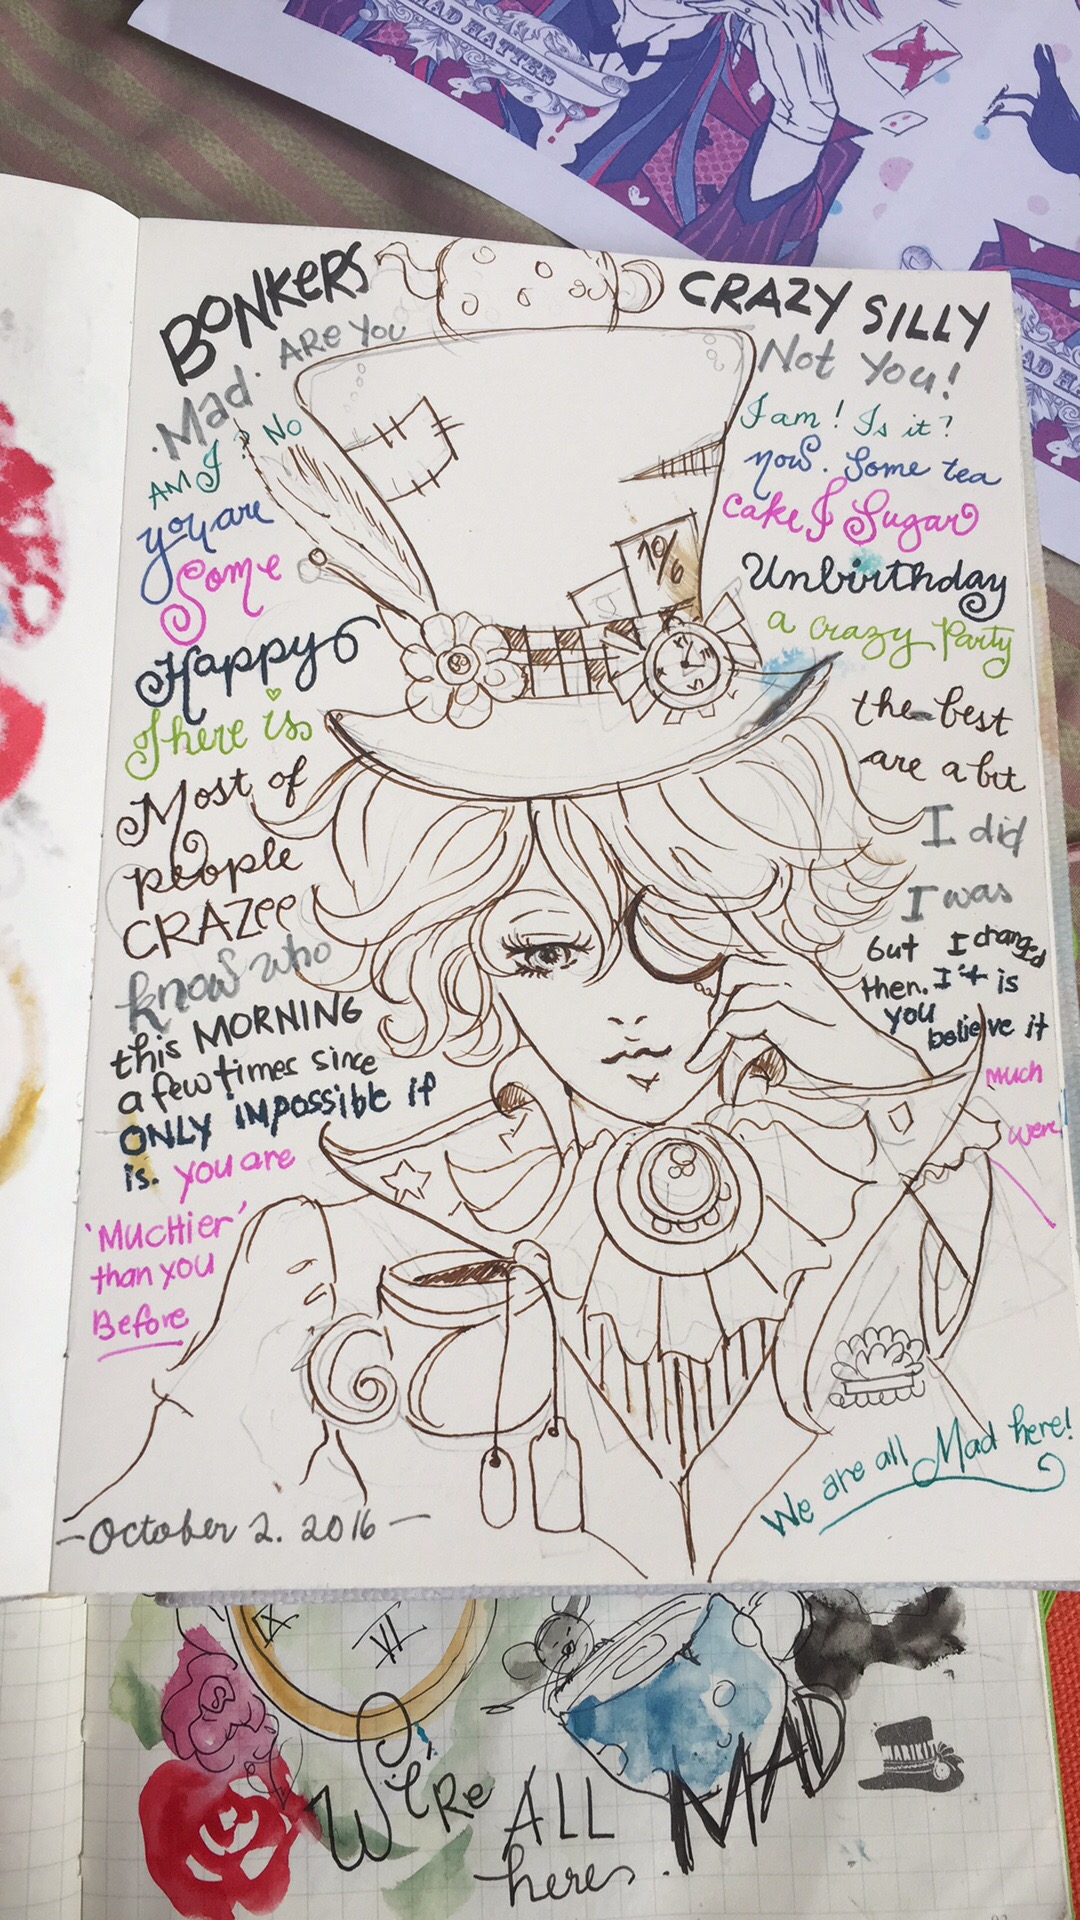 MAD HATTER
BONKERS
CRAZY SILLY
Mad. ARE YOU
Not You!
AM I? No
I am! Is it?
you are
now. Some tea
Some
cake & Sugar
10/6
Happy
Unbirthday
There is
a crazy Party
Most of
the best
people
are a bit
CRAZEE
I did
know who
I was
this MORNING
but I changed
a few times since
then. I't is
ONLY IMPOSSIBLE if
you believe it
is. you are
much
'MUCHIER'
were
than you
Before
We are all Mad here!
-October 2. 2016-
IX
VI
MARIKIT
We're ALL MAD
here.